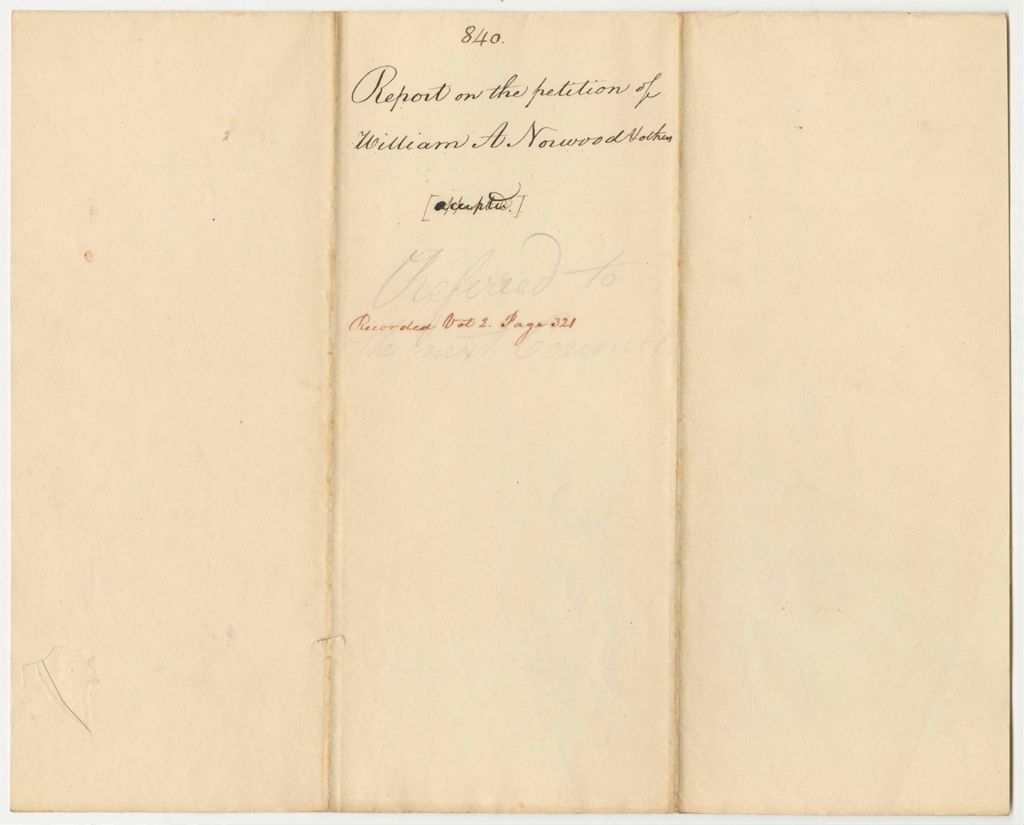 840.
Report on the petition of
William A Norwood & others
[accepted.]
Referred to
Recorded Vol 2. Page 321
the next Council